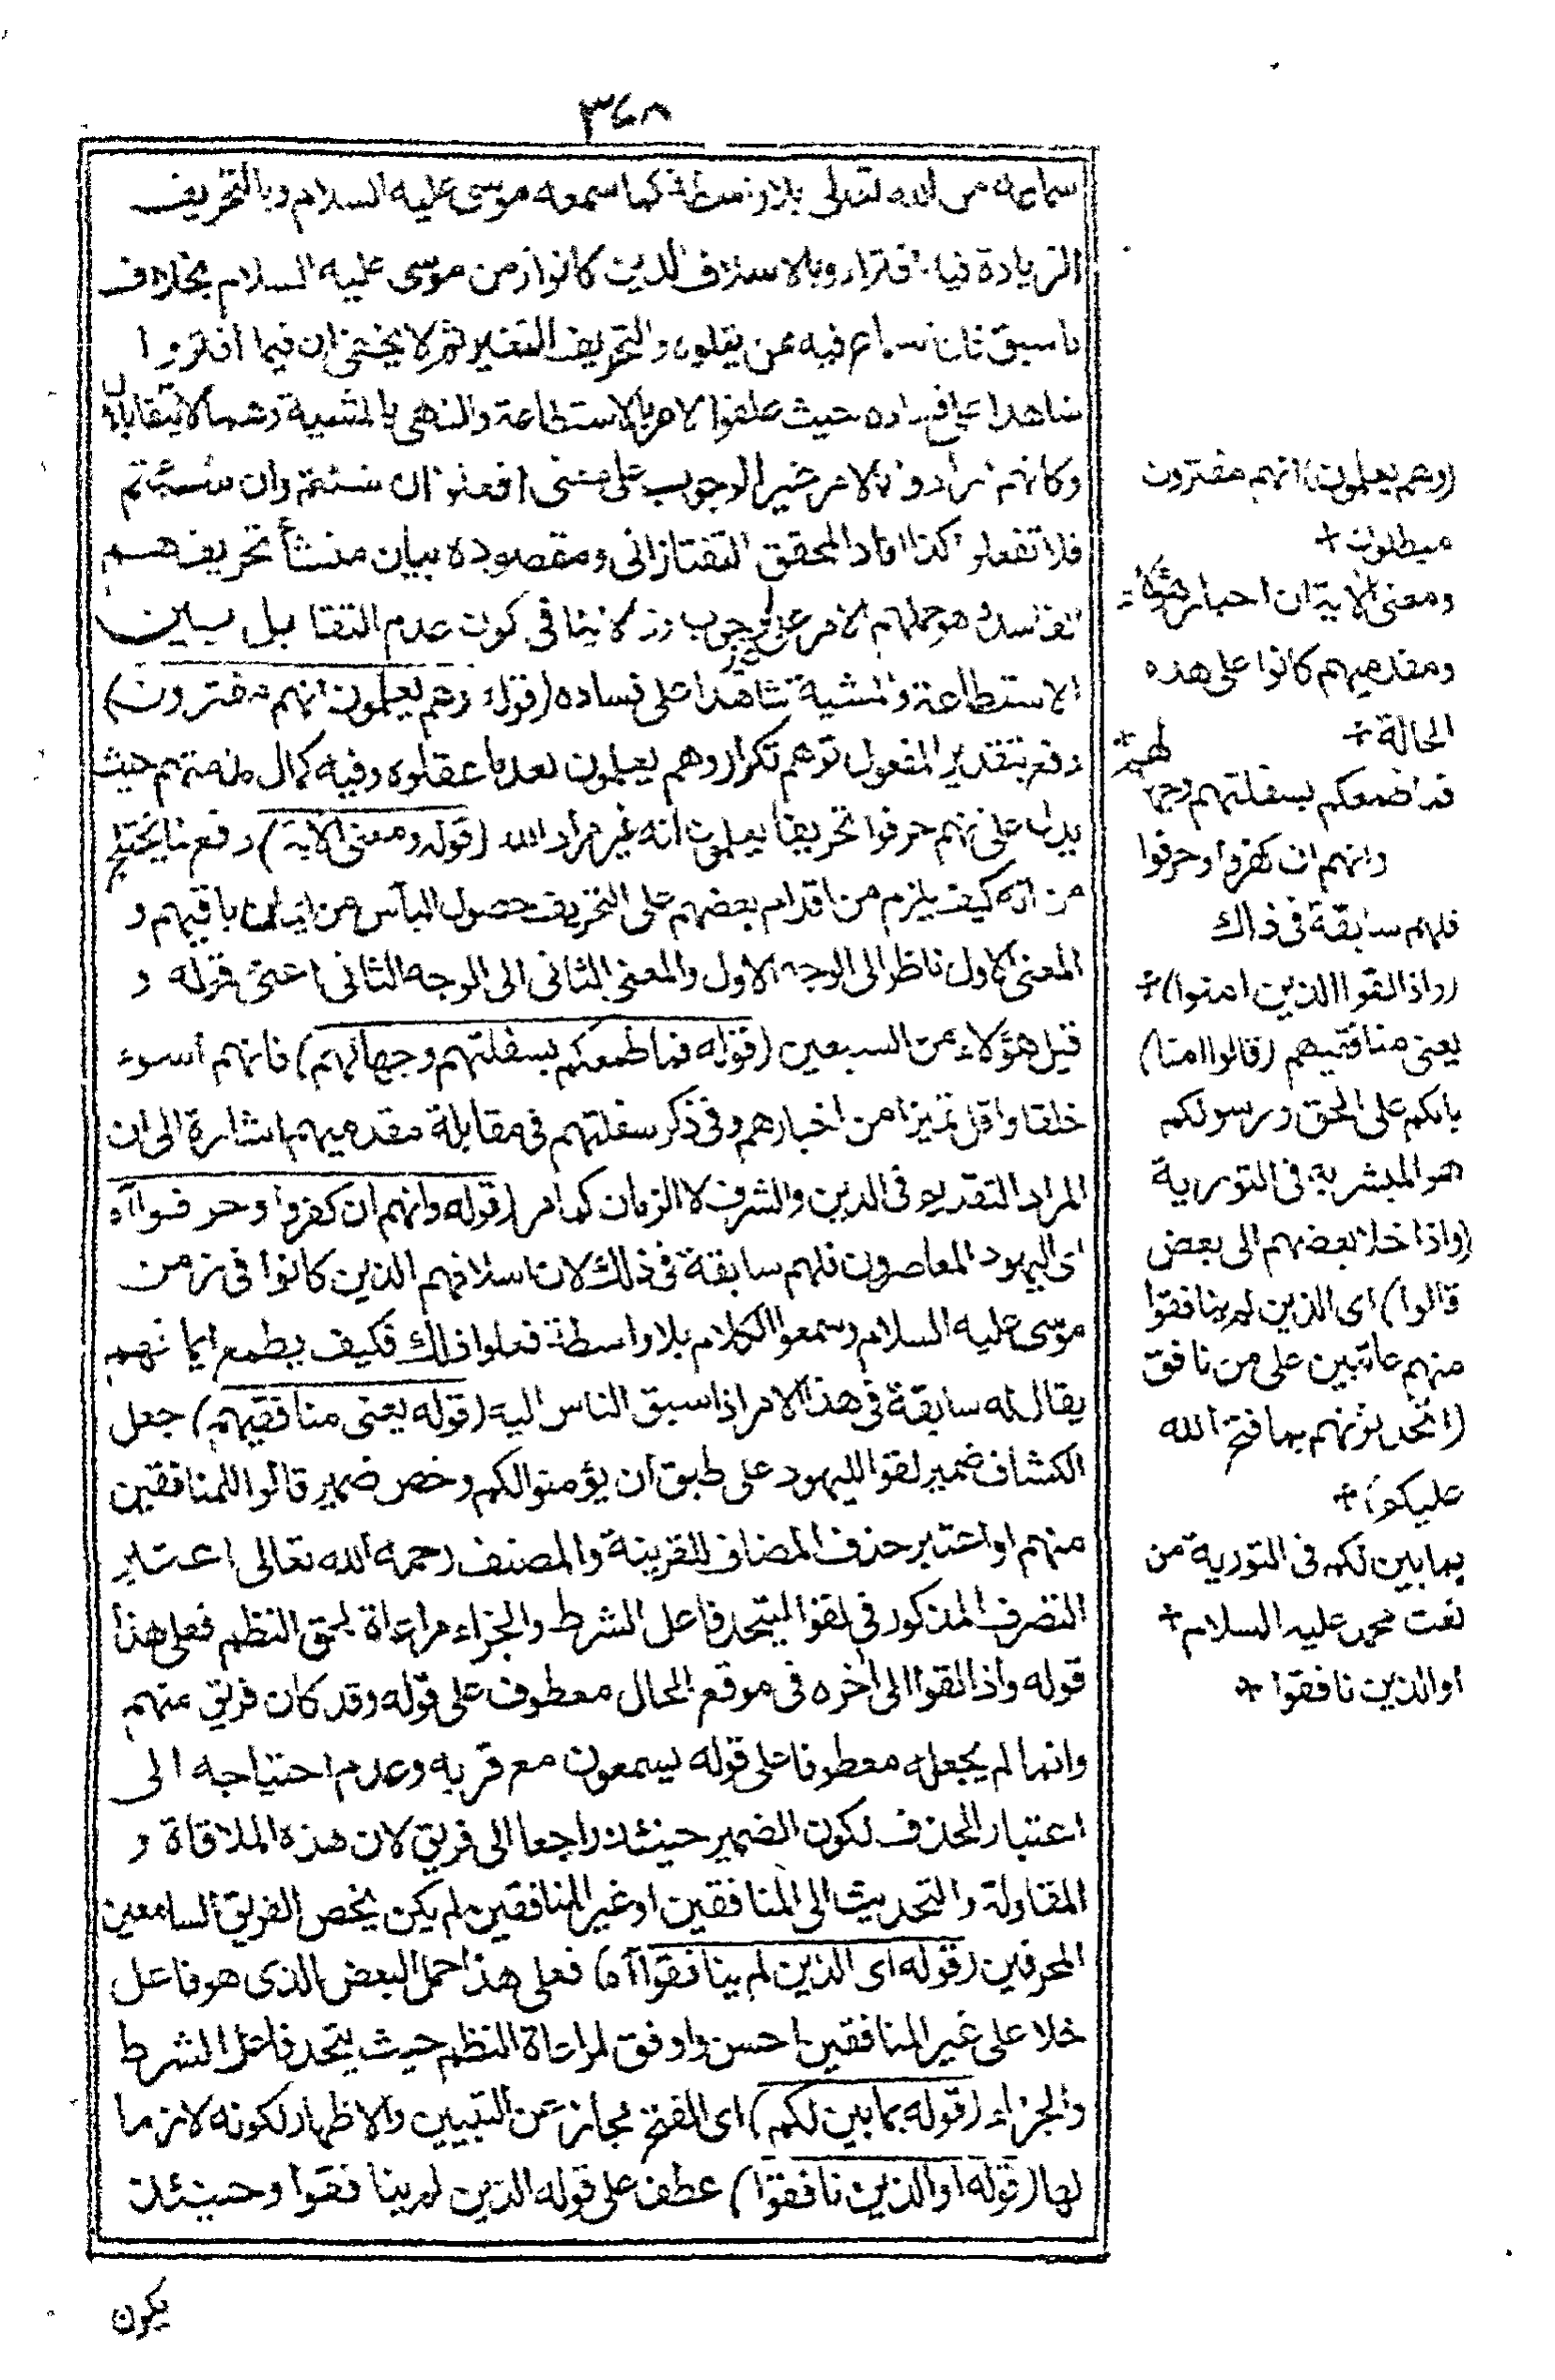 ٣٤٨
سماعه من الله تعالى بلا واسطة كما سمعه موسى عليه السلام وبالتحريف
الزيادة فيه افتراء وبالاسلاف الذين كانوا زمن موسى عليه السلام بخلاف
ما سبق فان سماع فيه عن يتلوه والتحريف التغير ثم لا يخفى ان فيما افتروا
شاهدا على فساده حيث علقوا الامر بالاستطاعة والنهى بالمشية وهما لا يتقابلان
وكانهم ارادوا بالامر خير الوجوب على معنى افعلوا ان شئتم وان شئتم
فلا تفعلوا كذا افاد المحقق التفتازانى ومقصوده بيان منشأ تحريفهم
الفاسد وهو حملهم الامر على الوجوب لا ينافى كون عدم التقابل بين
الاستطاعة والمشية شاهدا على فساده (قوله وهم يعلمون انهم مفترون)
دفع بتقدير المفعول توهم تكرار وهم يعلمون بعد ما عقلوه وفيه كمال مذمتهم حيث
يدل على انهم حرفوا تحريفا يعلمون انه غير مراد الله (قوله ومعنى الاية) دفع ما يختلج
من انه كيف يلزم من اقدام بعضهم على التحريف حصول اليأس من ايمان باقيهم و
المعنى الاول ناظر الى الوجه الاول والمعنى الثانى الى الوجه الثانى اعنى قوله و
قيل هؤلاء من السبعين (قوله فما طمعكم بسفلتهم وجهالهم) فانهم اسوء
خلقا واقل تميزا من احبارهم وفى ذكر سفلتهم فى مقابلة مقدميهم اشارة الى ان
المراد التقديم فى الدين والشرف لا الزمان كما مر (قوله وانهم ان كفروا وحرفوا آه
اى اليهود المعاصرون فلهم سابقة فى ذلك لان اسلافهم الذين كانوا فى زمن
موسى عليه السلام وسمعوا الكلام بلا واسطة فعلوا ذلك فكيف يطمع ايمانهم
يقال له سابقة فى هذا الامر اذا سبق الناس اليه (قوله يعنى منافقيهم) جعل
الكشاف ضمير لقوا لليهود على طبق ان يؤمنوا لكم وخص ضمير قالوا للمنافقين
منهم او اعتبر حذف المضاف للقرينة والمصنف رحمه الله تعالى اعتبر
التصرف المذكور فى لقوا ليتحد فاعل الشرط والجزاء مراعاة لحق النظم فعلى هذا
قوله واذا لقوا الى آخره فى موقع الحال معطوف على قوله وقد كان فريق منهم
وانما لم يجعله معطوفا على قوله يسمعون مع قربه وعدم احتياجه الى
اعتبار الحذف لكون الضمير حينئذ راجعا الى فريق لان هذه الملاقاة و
المقاولة والتحديث الى المنافقين او غير المنافقين لم يكن يخص الفريق السامعين
المحرفين (قوله اى الذين لم ينافقوا آه) فعلى هذا حمل البعض الذى هو فاعل
خلا على غير المنافقين احسن واوفق لمراعاة النظم حيث يتحد فاعل الشرط
والجزاء (قوله بما بين لكم) اى الفتح مجاز عن التبيين والاظهار لكونه لازما
لها (قوله او الذين نافقوا) عطف على قوله الذين لم ينافقوا وحينئذ
يكون
(وهم يعلمون) انهم مفترون
مبطلون +
ومعنى الاية ان احبار هؤلاء
ومقدميهم كانوا على هذه
الحالة +
فما طمعكم بسفلتهم وجهالهم
وانهم ان كفروا وحرفوا
فلهم سابقة فى ذلك
(واذا لقوا الذين امنوا) +
يعنى منافقيهم (قالوا امنا)
بانكم على الحق ورسولكم
هو المبشر به فى التورية
(واذا خلا بعضهم الى بعض
قالوا) اى الذين لم ينافقوا
منهم عاتبين على من نافق
(اتحدثونهم بما فتح الله
عليكم) +
بما بين لكم فى التورية من
نعت محمد عليه السلام +
او الذين نافقوا +